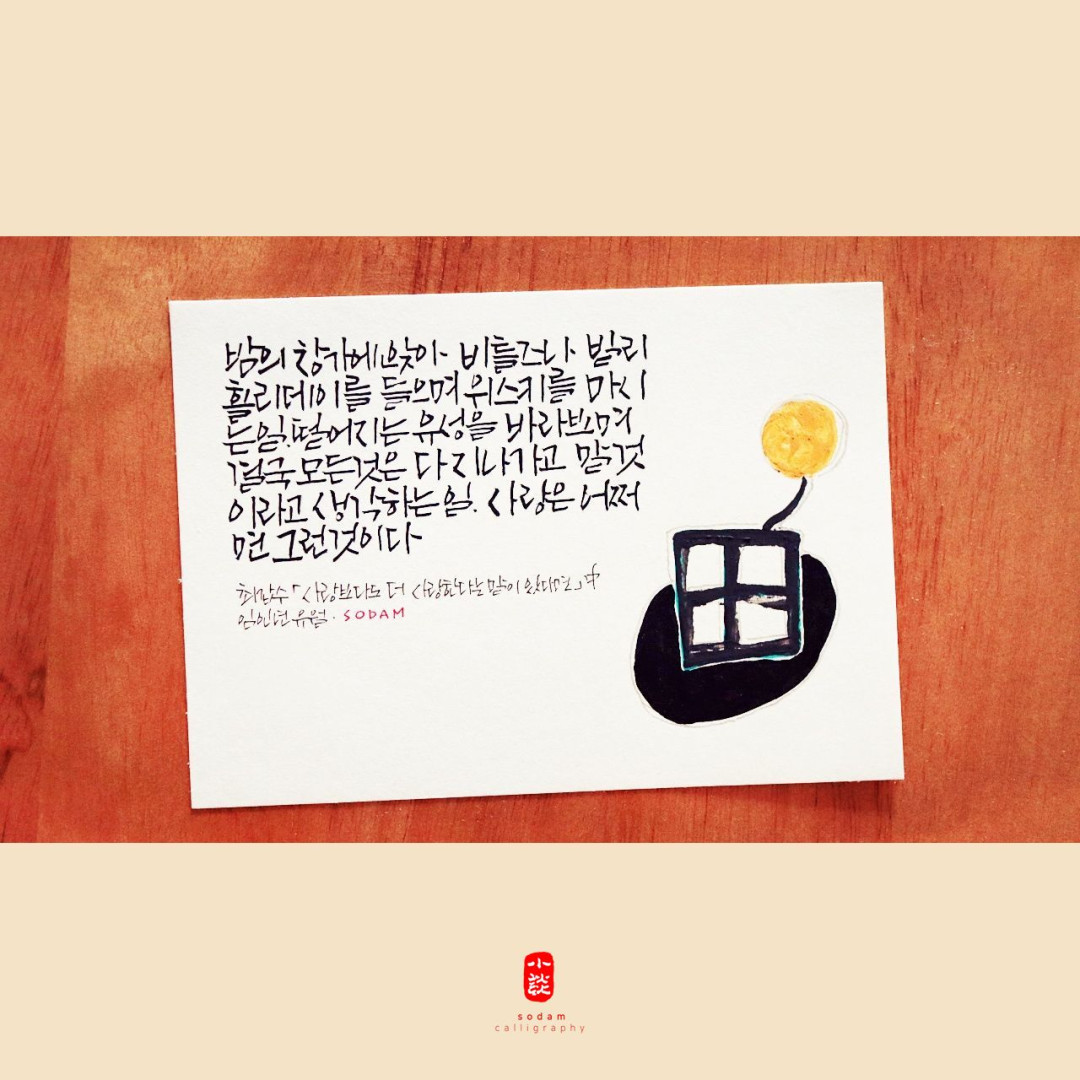 밤의 창가에 앉아 비틀즈나 빌리
홀리데이를 들으며 위스키를 마시
는일. 떨어지는 유성을 바라보며
결국 모든것은 다 지나가고 말 것
이라고 생각하는 일. 사랑은 어쩌
면 그런것이다
최갑수 「사랑보다도 더 사랑한다는 말이 있다면」中
임인년 유월 · SODAM
小談
sodam
calligraphy